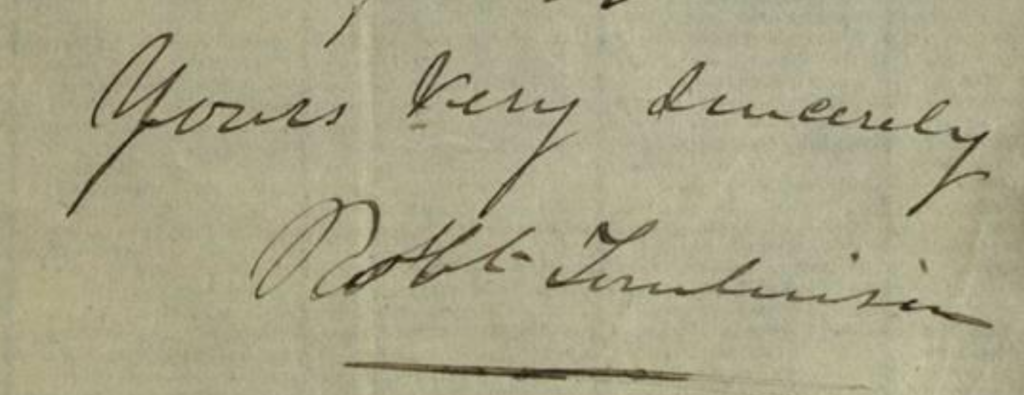 Yours Very Sincerely
Robt Tomlinson